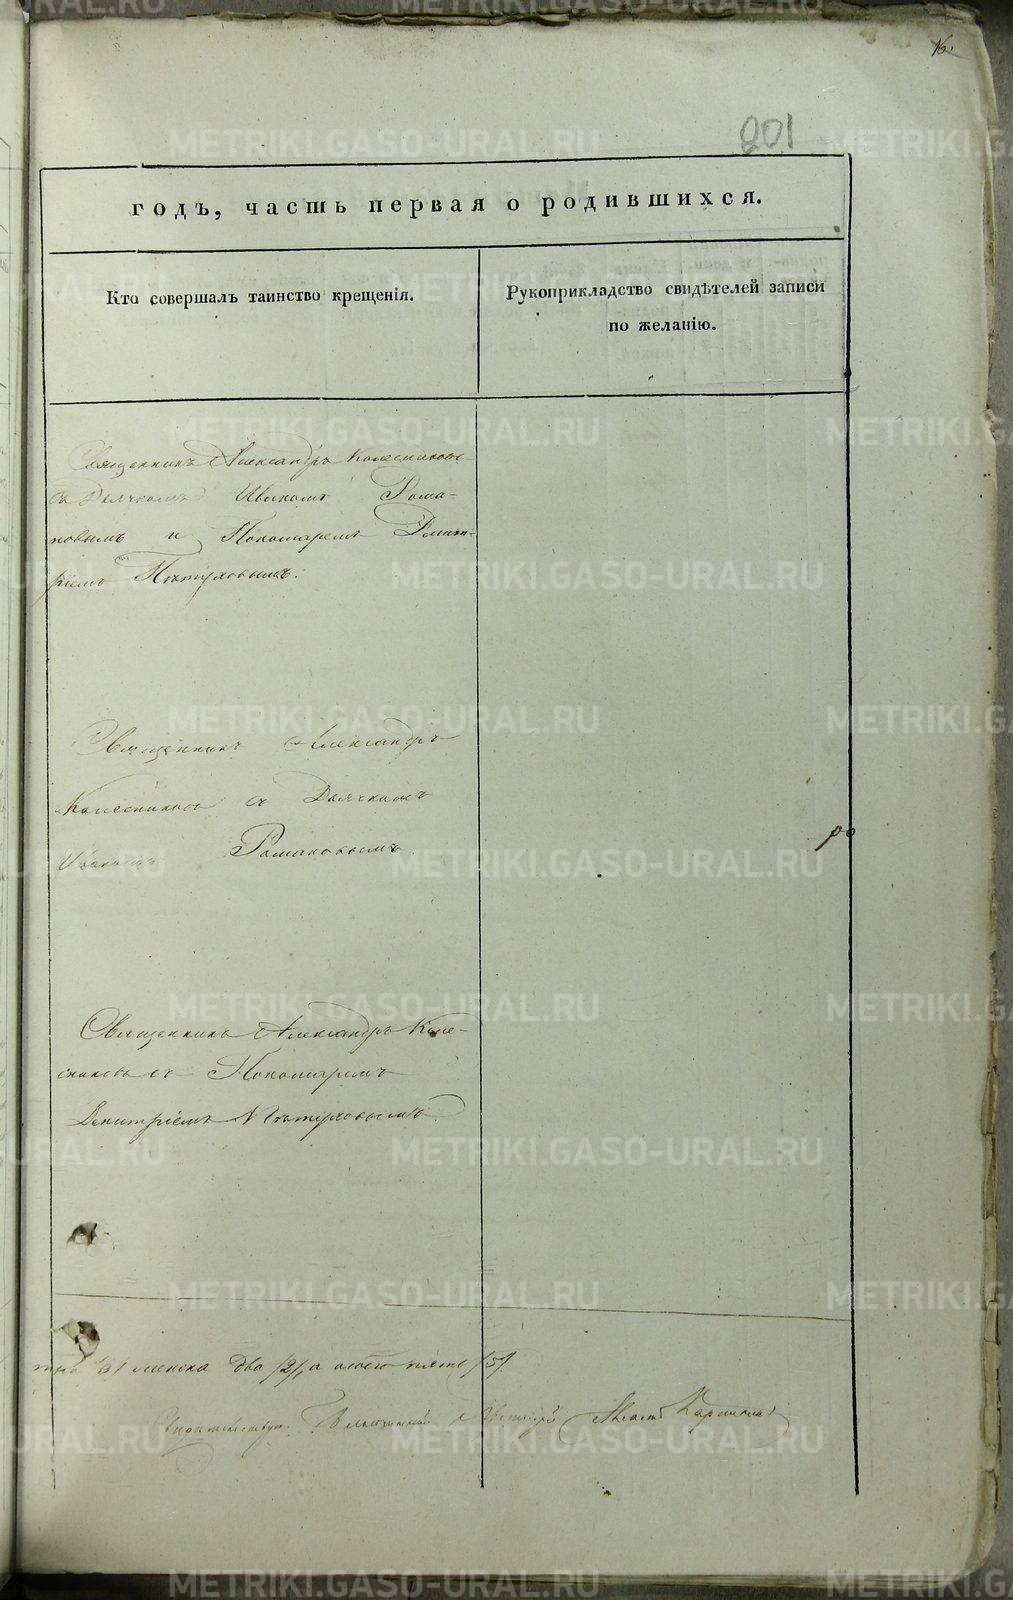 16.
201
годъ, часть первая о родившихся.
Кто совершалъ таинство крещенія.
Рукоприкладство свидѣтелей записи
по желанію.
Священникъ Александръ Колесниковъ
съ Дьячкомъ Иваномъ Рома-
новымъ и Пономаремъ Димит-
ріемъ Пѣтуховымъ.
Священникъ Александръ
Колесниковъ съ Дьячкомъ
Иваномъ Романовымъ.
Священникъ Александръ Коле-
сниковъ съ Пономаремъ
Димитріемъ Пѣтуховымъ
три /3/ женска два /2/, а обоего пять /5/.
METRIKI.GASO-URAL.RU